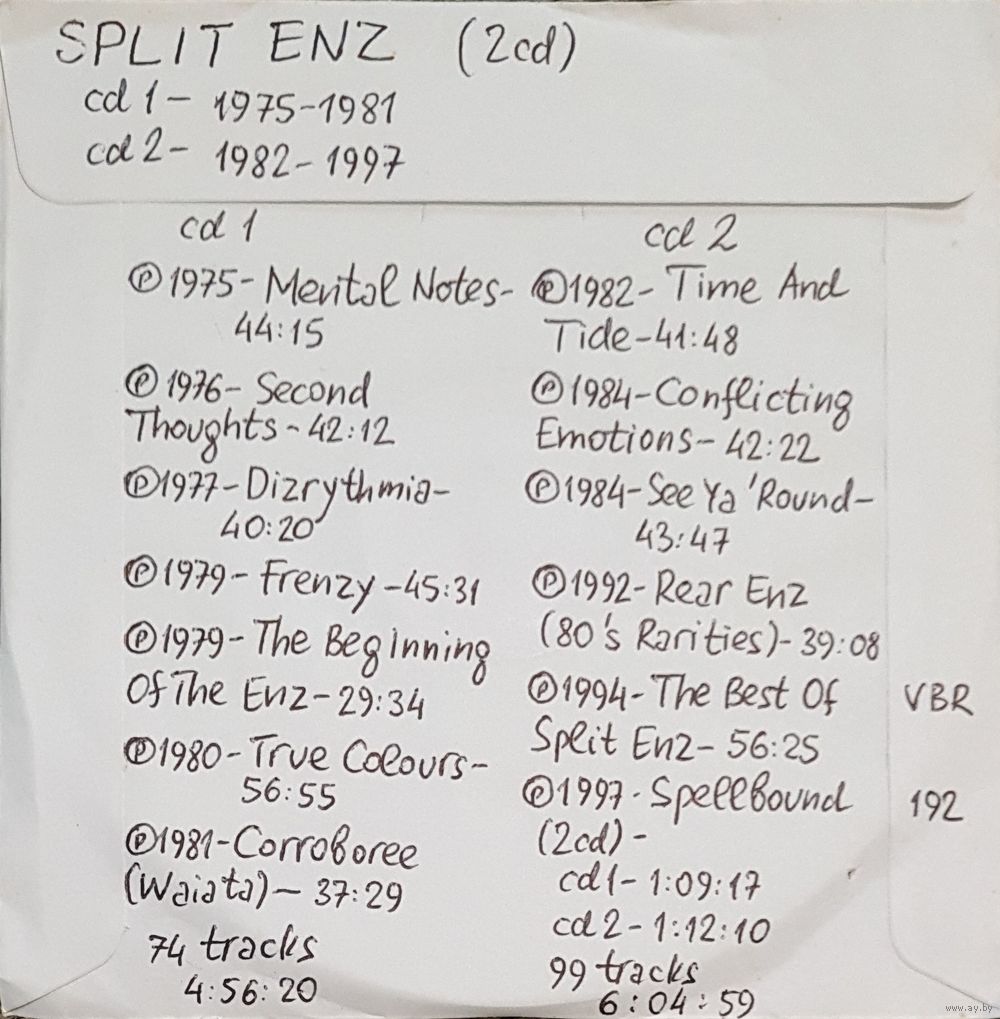 SPLIT ENZ (2cd)
cd 1 - 1975-1981
cd 2 - 1982-1997
cd 1
Ⓟ1975- Mental Notes-
44:15
Ⓟ1976- Second
Thoughts - 42:12
Ⓟ1977- Dizrythmia-
40:20
Ⓟ1979- Frenzy -45:31
Ⓟ1979- The Beginning
Of The Enz- 29:34
Ⓟ1980- True Colours-
56:55
Ⓟ1981- Corroboree
(Waiata)- 37:29
74 tracks
4:56:20
cd 2
Ⓟ1982- Time And
Tide-41:48
Ⓟ1984-Conflicting
Emotions- 42:22
Ⓟ1984-See Ya 'Round-
43:47
Ⓟ1992- Rear Enz
(80's Rarities)- 39:08
Ⓟ1994- The Best Of
Split Enz- 56:25
Ⓟ1997- Spellbound
(2cd) -
cd1- 1:09:17
cd 2- 1:12:10
99 tracks
6:04:59
VBR
192
www.ay.by